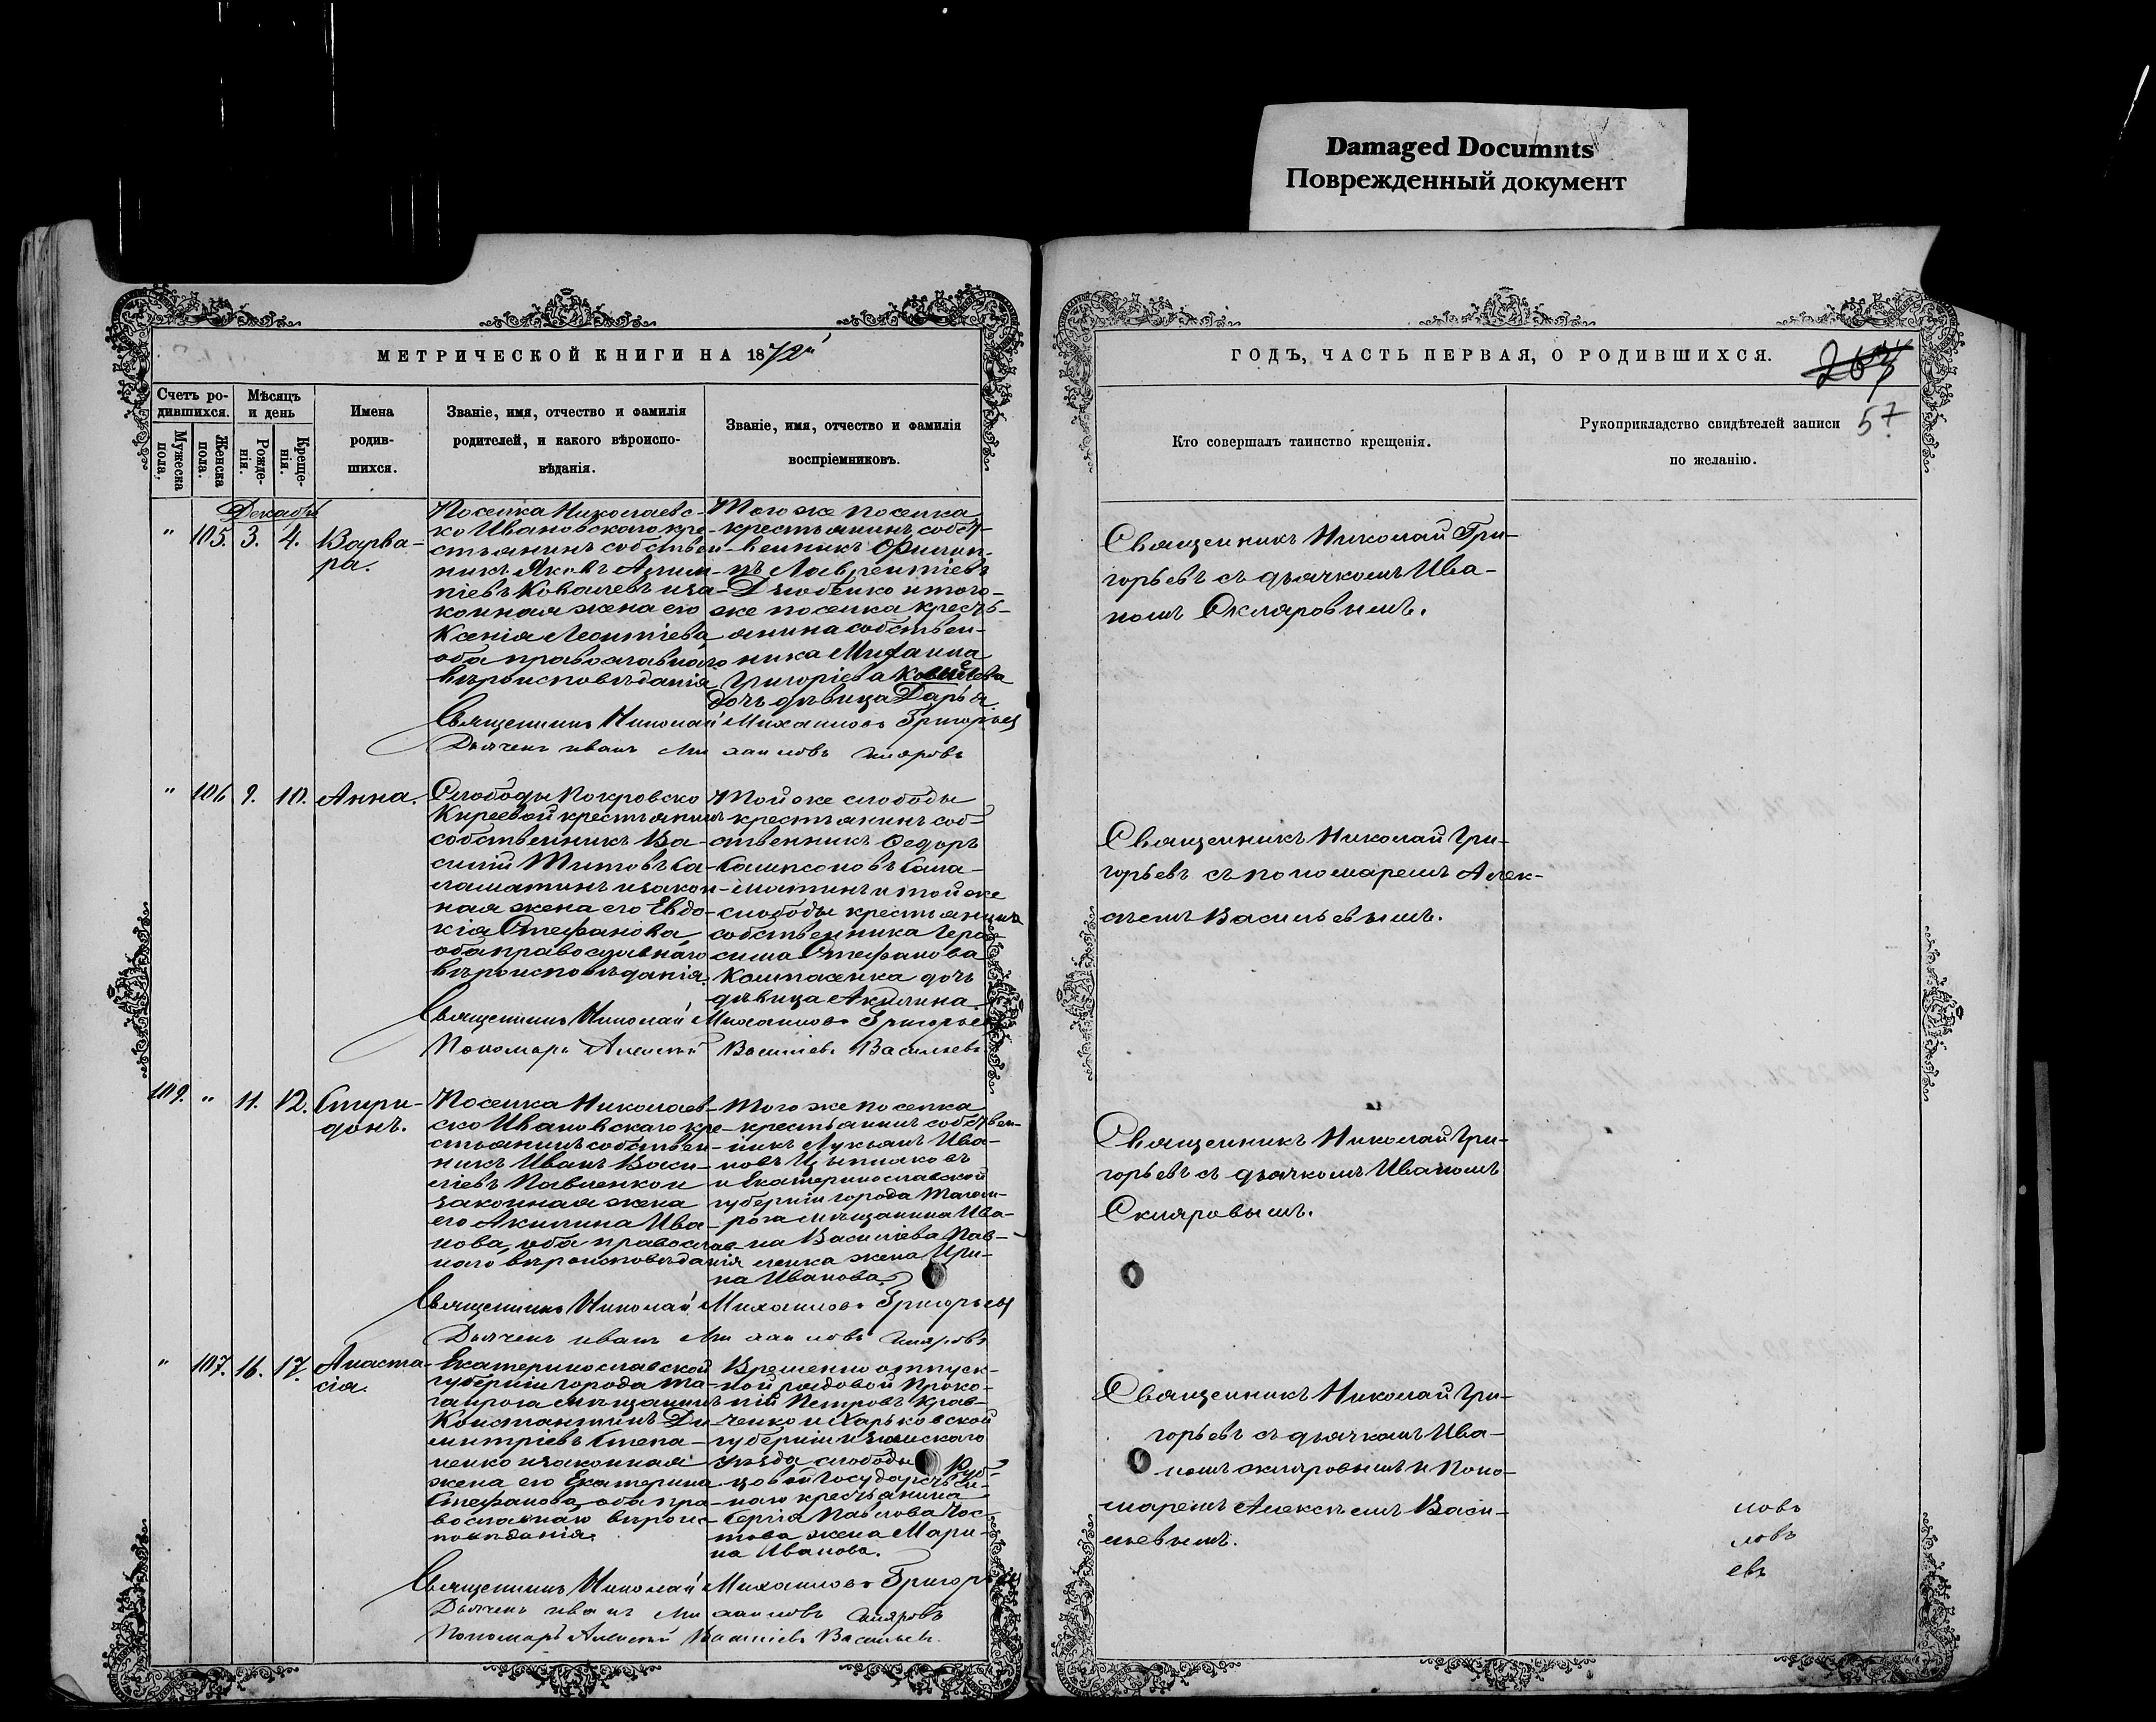 Damaged Documnts
Поврежденный документ
МЕТРИЧЕСКОЙ КНИГИ НА 1872й
Счетъ ро-
дившихся.
Мужеска
пола.
Женска
пола.
Мѣсяцъ
и день
Рожде-
нія.
Креще-
нія.
Имена
родив-
шихся.
Званіе, имя, отчество и фамилія
родителей, и какого вѣроиспо-
вѣданія.
Званіе, имя, отчество и фамилія
воспріемниковъ.
Декабрь
" 105. 3. 4.
Варва-
ра.
Поселка Николаевс-
ко Ивановскаго кре-
стьянинъ собствен-
никъ Яковъ
піевъ Ковалевъ и за-
конная жена его
Ксенія Леонтіева
оба православнаго
вѣроисповѣданія
Того же поселка
крестьянинъ собст-
венникъ Филип-
пъ Лаврентіевъ
Дзюбенко и того-
же поселка кресть-
янина собствен-
ника Михаила
Григоріева Ковалева
дочь дѣвица Дарья.
Священникъ Николай Михаиловъ Григорьевъ
Дьячекъ Иванъ Михаиловъ Скляровъ
" 106 9. 10. Анна.
Слободы Покровско
Киреевой крестьянинъ
собственникъ Ва-
силій Титовъ Са-
ламатинъ и закон-
ная жена его Евдо-
кія Стефанова
оба православнаго
вѣроисповѣданія.
Той же слободы
крестьянинъ соб-
ственникъ Ѳедоръ
Сампсоновъ Сала-
матинъ и той же
слободы крестьянина
собственника Гера-
сима Стефанова
дочь
дѣвица Акилина
Священникъ Николай Михаиловъ Григорьевъ
Пономарь Алексѣй Василіевъ Васильевъ
109. " 11. 12.
Спири-
донъ.
Поселка Николаев-
ско Ивановскаго кре-
стьянинъ собствен-
никъ Иванъ Васи-
ліевъ Павленко и
законная жена
его Акилина Ива-
нова, оба православ-
наго вѣроисповѣданія
Того же поселка
крестьянинъ собствен-
никъ Лукьянъ Ива-
новъ
и Екатеринославской
губерніи города Таган-
рога мѣщанина Ива-
на Василіева Пав-
ленка жена Ири-
на Иванова
Священникъ Николай Михаиловъ Григорьевъ
Дьячекъ Иванъ Михаиловъ Скляровъ
" 107. 16. 17.
Анаста-
сія.
Екатеринославской
губерніи города Та-
ганрога мѣщанинъ
Константинъ Ди-
митріевъ Степа-
ненко и законная
жена его Екатерина
Стефанова, оба пра-
вославнаго вѣроис-
повѣданія.
Временно отпуск-
ной рядовой Проко-
пій Петровъ Крав-
ченко и Харьковской
губерніи Изюмскаго
уѣзда слободы Руб-
цовой Государствен-
наго крестьянина
Сергія Павлова Гос-
това жена Мари-
на Иванова.
Священникъ Николай Михаиловъ Григорьевъ
Дьячекъ Иванъ Михаиловъ Скляровъ
Пономарь Алексѣй Василіевъ Васильевъ.
ГОДЪ, ЧАСТЬ ПЕРВАЯ, О РОДИВШИХСЯ.
57
Кто совершалъ таинство крещенія.
Рукоприкладство свидѣтелей записи
по желанію.
Священникъ Николай Гри-
горьевъ съ дьячкомъ Ива-
номъ Скляровымъ.
Священникъ Николай Гри-
горьевъ съ пономаремъ Алек-
сѣемъ Васильевымъ.
Священникъ Николай Гри-
горьевъ съ дьячкомъ Иваномъ
Скляровымъ.
Священникъ Николай Гри-
горьевъ съ дьячкомъ Ива-
номъ Скляровымъ и Поно-
маремъ Алексѣемъ Васи-
льевымъ.
новъ
ловъ
евъ